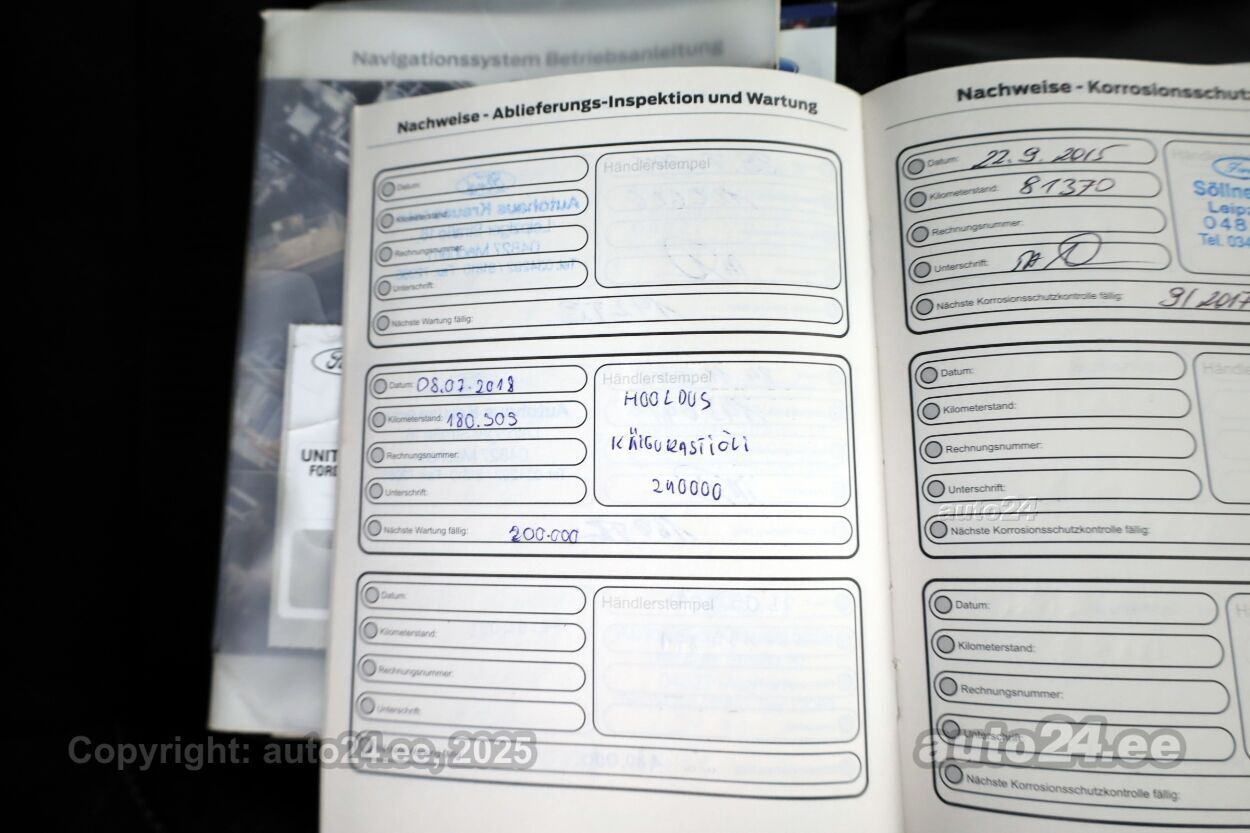 Navigationssystem Betriebsanleitung
Nachweise - Ablieferungs-Inspektion und Wartung
Datum:
Kilometerstand:
Rechnungsnummer:
Unterschrift:
Nächste Wartung fällig:
Händlerstempel
Datum: 08.07.2018
Kilometerstand: 180.503
Rechnungsnummer:
Unterschrift:
Nächste Wartung fällig: 200.000
Händlerstempel
HOOLDUS
KÄIGUKASTIÕLI
240000
Datum:
Kilometerstand:
Rechnungsnummer:
Unterschrift:
Händlerstempel
UNIT
FORD
Nachweise - Korrosionsschutz
Datum: 22.9.2015
Kilometerstand: 81370
Rechnungsnummer:
Unterschrift:
Nächste Korrosionsschutzkontrolle fällig: 9/2017
Ford
Söllne
Leipz
048
Tel. 034
Datum:
Kilometerstand:
Rechnungsnummer:
Unterschrift:
Nächste Korrosionsschutzkontrolle fällig:
Datum:
Kilometerstand:
Rechnungsnummer:
Unterschrift:
Nächste Korrosionsschutzkontrolle fällig:
auto24
auto24.ee
Copyright: auto24.ee, 2025